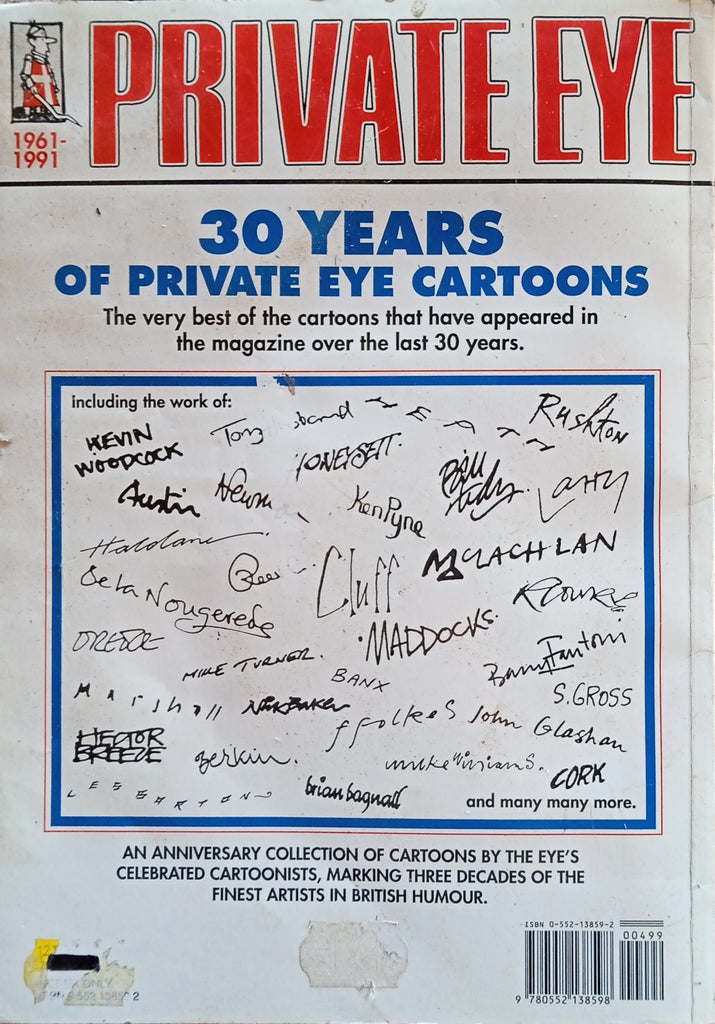 PRIVATE EYE
1961-
1991
30 YEARS
OF PRIVATE EYE CARTOONS
The very best of the cartoons that have appeared in
the magazine over the last 30 years.
Including the work of:
KEVIN
WOODCOCK
Tony
HEATH
Rushton
HONEYSETT.
Bill
Tidy
Larry
Austin
Newman
Ken Pyne
Haldane
McLACHLAN
Cluff
de la Nougerede
MADDOCKS
DREDGE
MIKE TURNER.
BANX
Barry Fantoni
S. GROSS
Marshall
Nick Baker
ffolkes
John Glashan
HECTOR
BREEZE
Zerkin.
mike Williams.
CORK
LES BARTON
brian bagnall
and many many more.
AN ANNIVERSARY COLLECTION OF CARTOONS BY THE EYE'S
CELEBRATED CARTOONISTS, MARKING THREE DECADES OF THE
FINEST ARTISTS IN BRITISH HUMOUR.
ISBN 0-552-13859-2
00499
9 780552 138598
ONLY